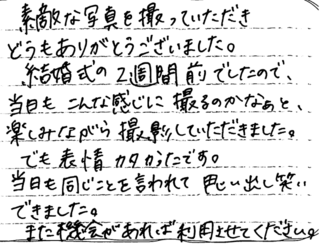 素敵な写真を撮っていただき
どうもありがとうございました。
結婚式の2週間前でしたので、
当日もこんな感じに撮るのかなぁと、
楽しみながら撮影していただきました。
でも表情カタかったです。
当日も同じことを言われて思い出し笑い
できました。
また機会があれば利用させてください。